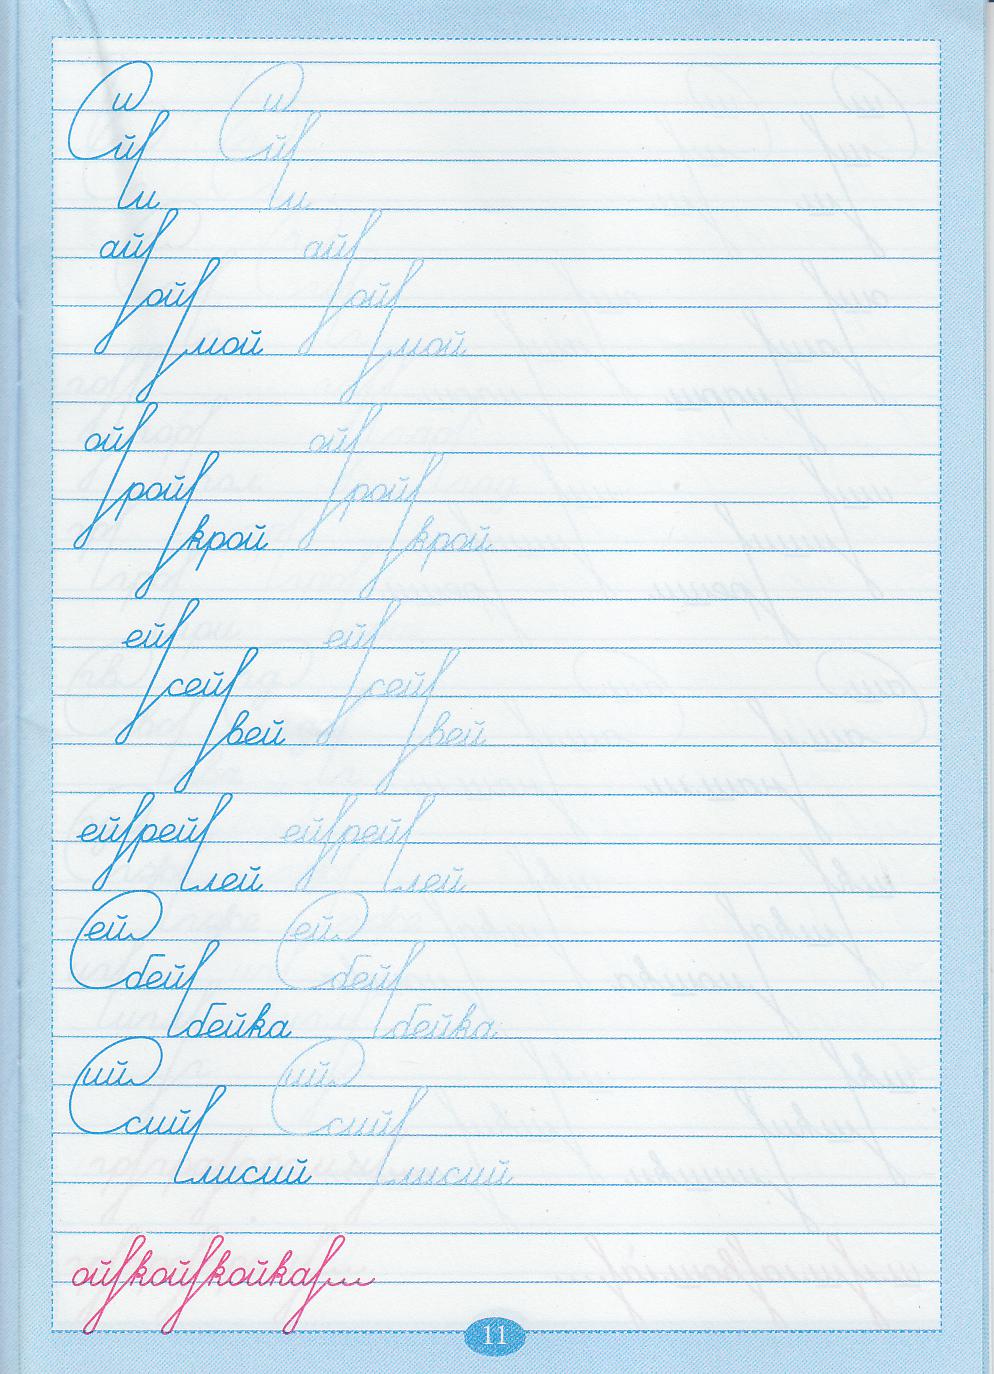 и и
й й
и и
ай ай
ой ой
мой мой
ой ой
рой рой
крой крой
ей ей
сей сей
вей вей
ей рей ей рей
лей лей
ей ей
бей бей
бейка бейка
ий ий
сий сий
лисий лисий
ой кой койка
11